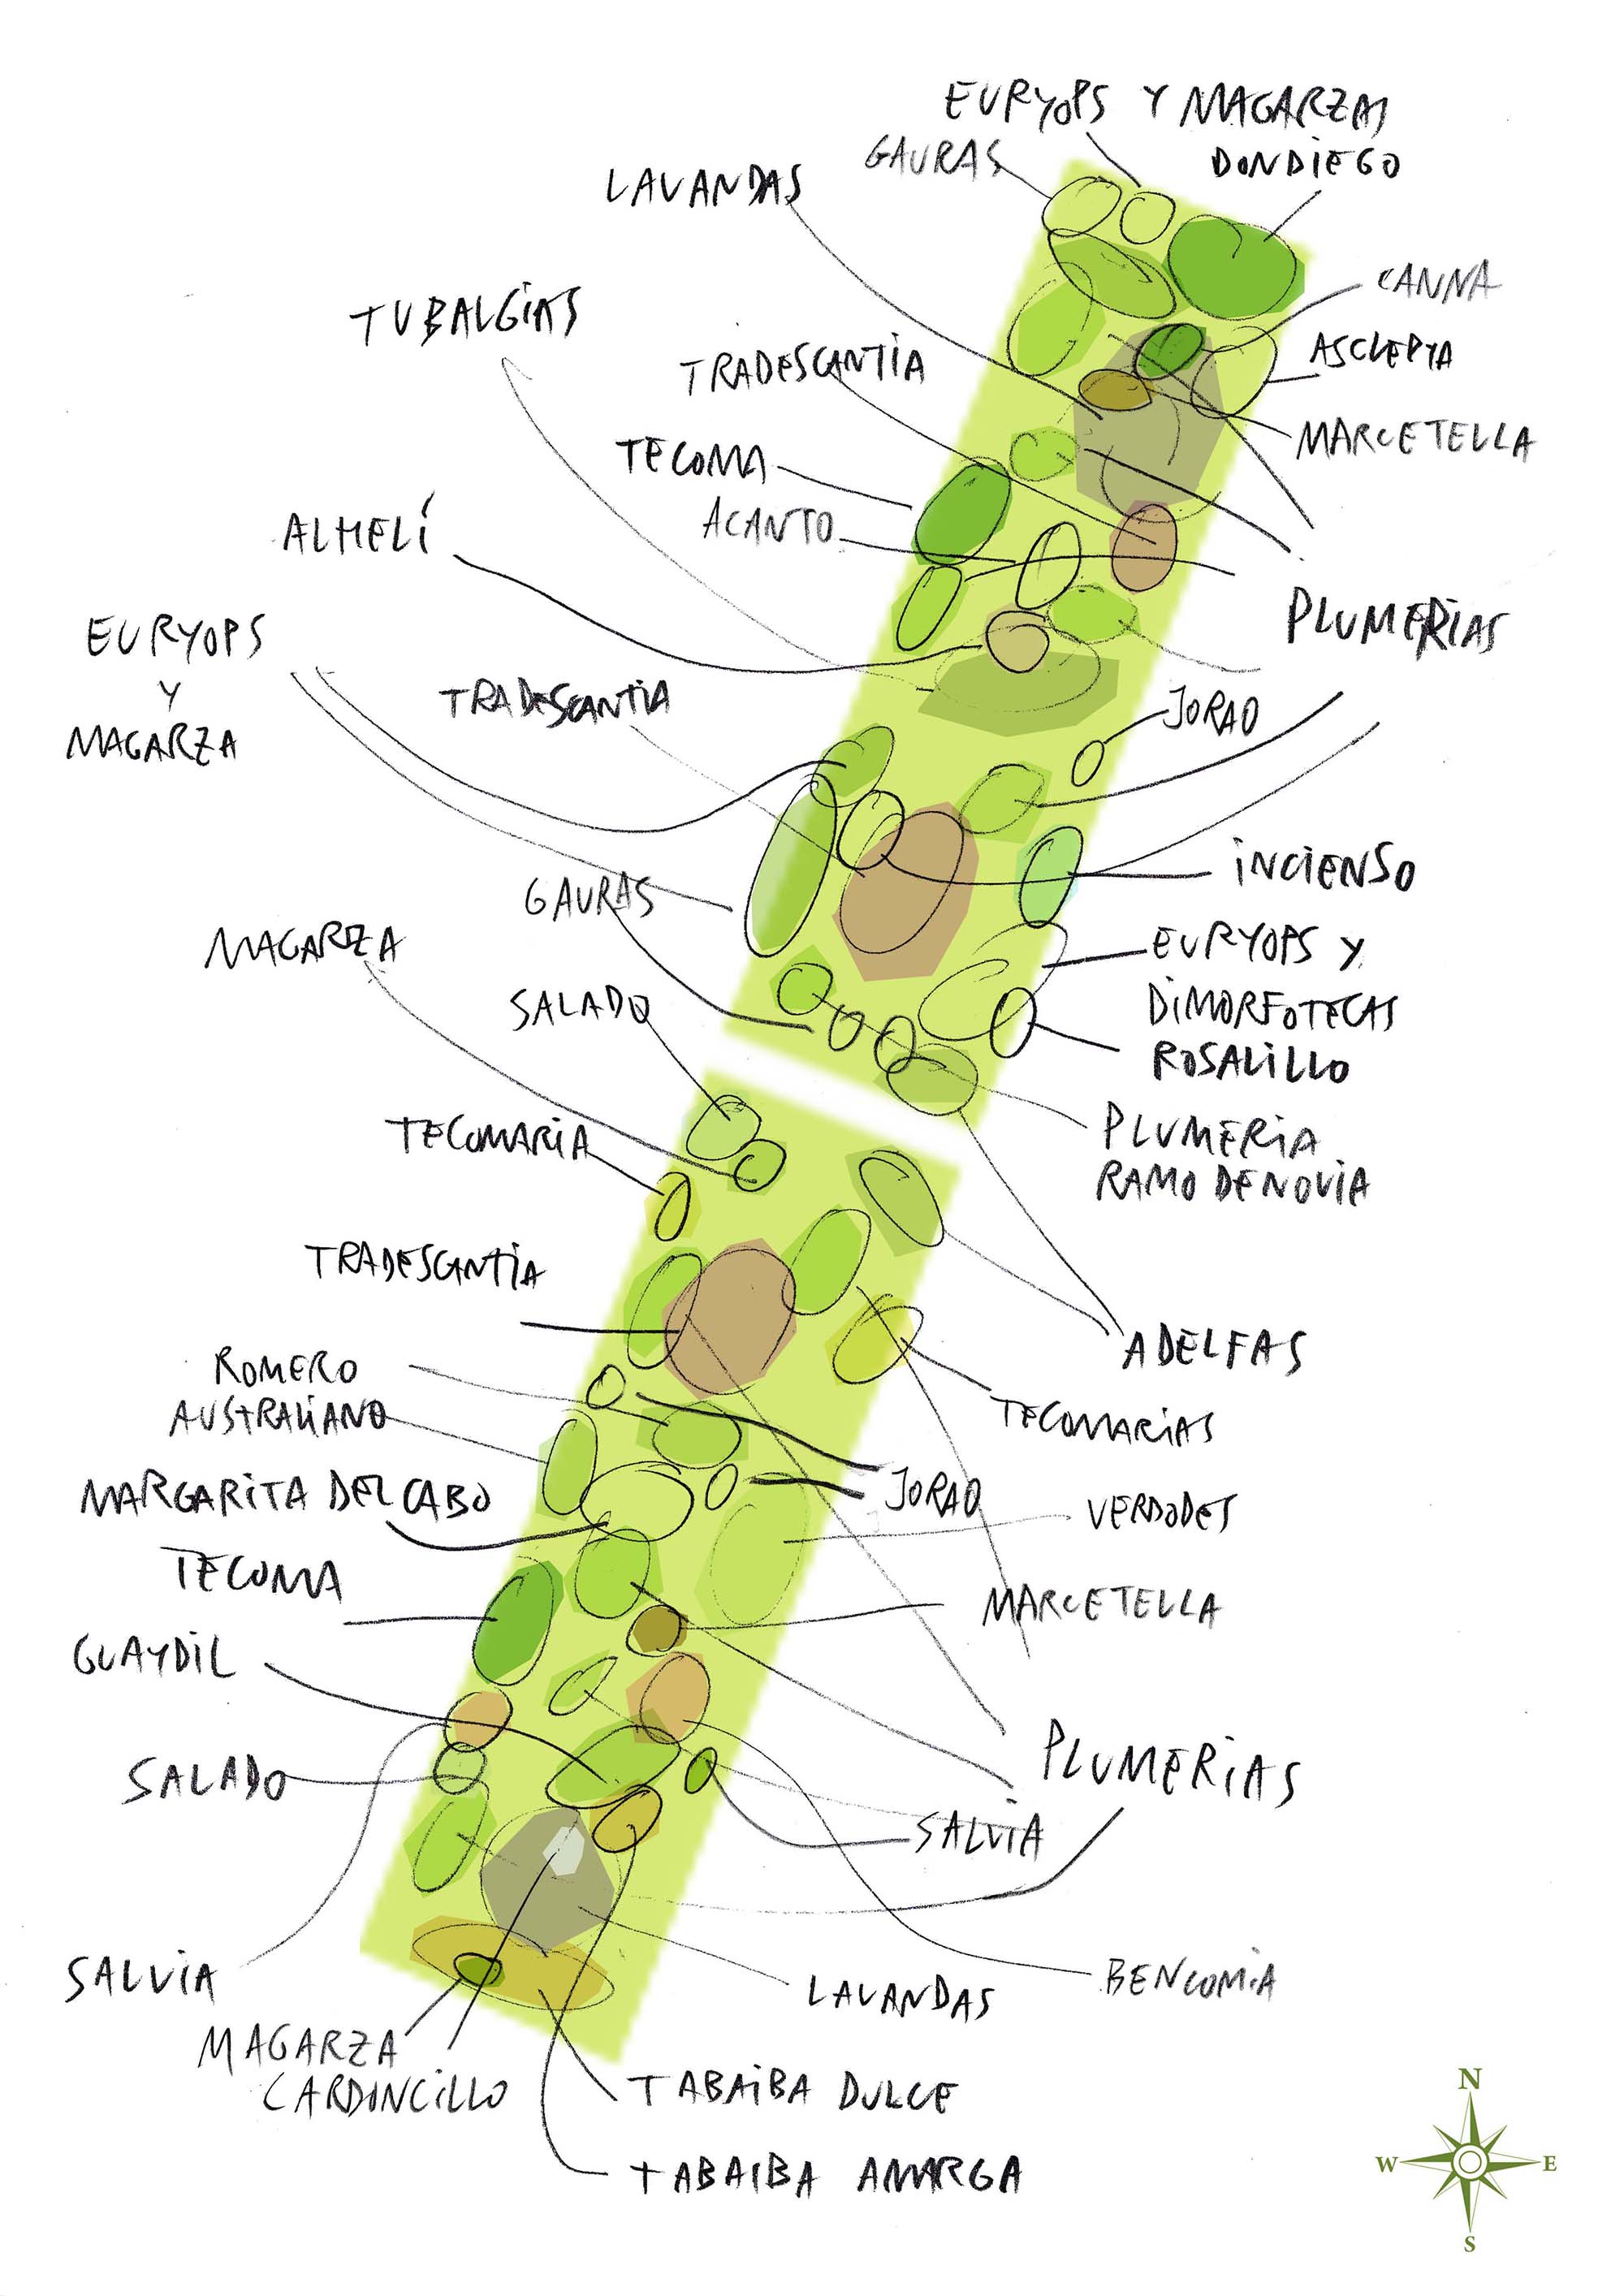 EURYOPS Y MAGARZAS
GAURAS
DONDIEGO
LAVANDAS
CANNA
TUBALGIAS
TRADESCANTIA
ASCLEPIA
MARCETELLA
TECOMA
ACANTO
ALHELÍ
PLUMERIAS
EURYOPS
Y
MAGARZA
TRADESCANTIA
JORAO
INCIENSO
GAURAS
MAGARZA
EURYOPS Y
DIMORFOTECAS
ROSALILLO
SALADO
TECOMARIA
PLUMERIA
RAMO DE NOVIA
TRADESCANTIA
ADELFAS
ROMERO
AUSTRALIANO
TECOMARIAS
MARGARITA DEL CABO
JORAO
VERDODES
TECOMA
MARCETELLA
GUAYDIL
PLUMERIAS
SALADO
SALVIA
SALVIA
LAVANDAS
BENCOMIA
MAGARZA
CARDONCILLO
TABAIBA DULCE
TABAIBA AMARGA
N
W E
S